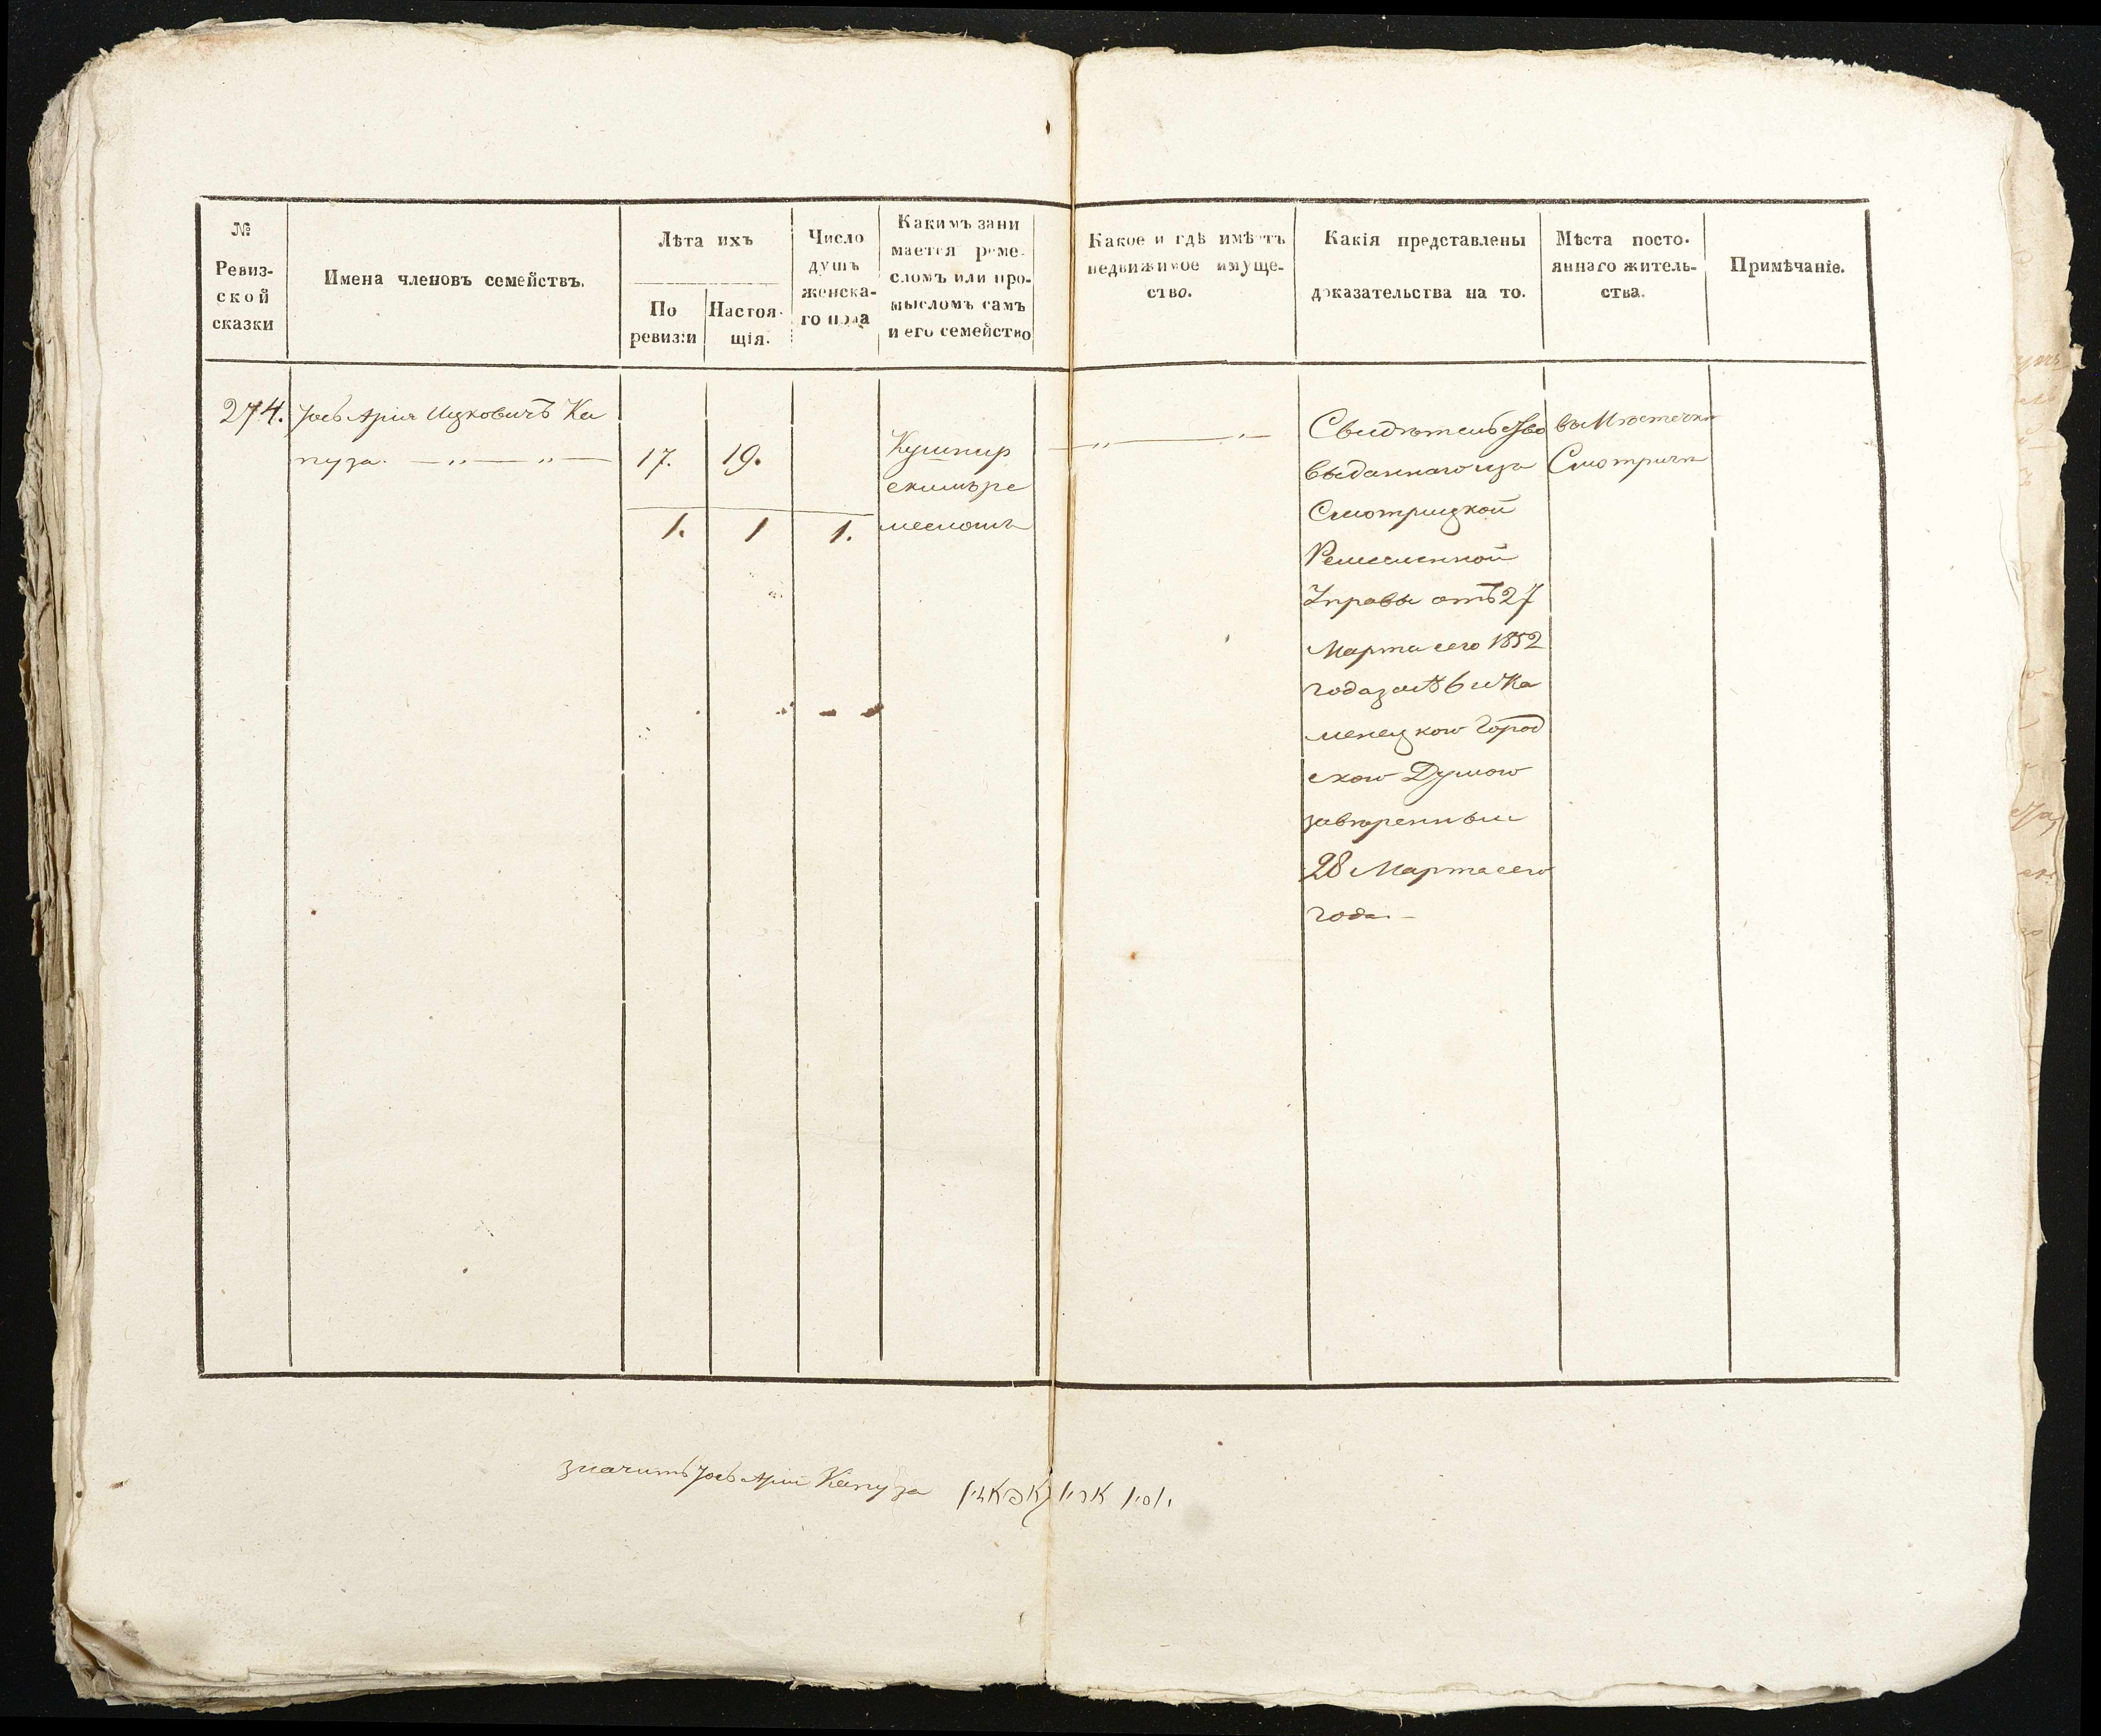 №
Ревиз-
ской
сказки
Имена членовъ семействъ.
Лѣта ихъ
По
ревизіи
Настоя-
щія.
Число
душъ
женска-
го пола
Какимъ зани
мается реме-
сломъ или про-
мысломъ самъ
и его семейство
Какое и гдѣ имѣетъ
недвижимое имуще-
ство.
Какія представлены
доказательства на то.
Мѣста посто-
яннаго житель-
ства.
Примѣчаніе.
274.
Іосъ Арія Ицковичъ Ка
пуза. — „ — „ —
17.
19.
1.
1
1.
Кушнир
скимъ ре
месломъ
— „ — „ —
Свидѣтельство
выданнаго изъ
Смотрицкой
Ремесленной
Управы отъ 27
Марта сего 1852
года за № 6 и Ка
менецкою Город
скою Думою
завѣренным
28 Марта сего
года. —
въ Мѣстечкѣ
Смотричѣ
значитъ Іосъ Арій Капуза